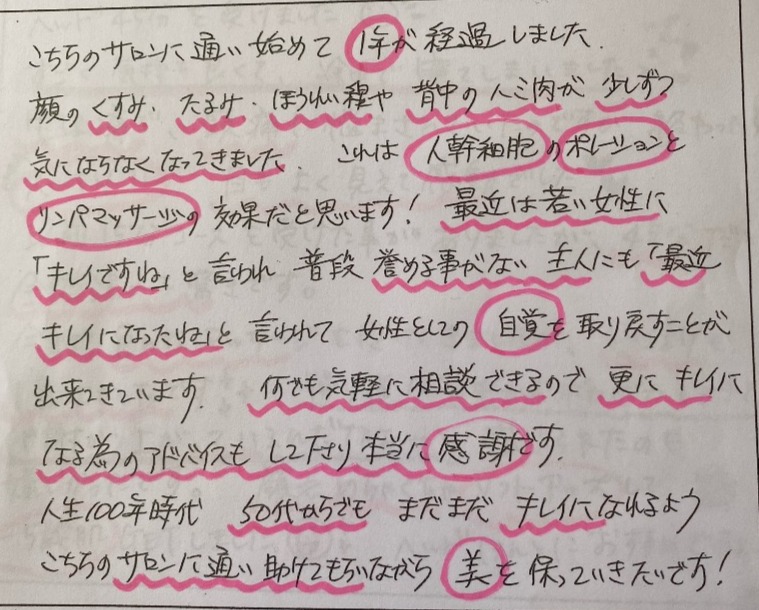 こちらのサロンに通い始めて1年が経過しました.
顔のくすみ・たるみ・ほうれい線や背中の人ミ肉が少しずつ
気にならなくなってきました.これは人幹細胞のポレーションと
リンパマッサージの効果だと思います!最近は若い女性に
「キレイですね」と言われ普段誉める事がない主人にも「最近
キレイになったね」と言われて女性としての自覚を取り戻すことが
出来てきています.何でも気軽に相談できるので更にキレイに
なる為のアドバイスもして下さり本当に感謝です.
人生100年時代50代からでもまだまだキレイになれるよう
こちらのサロンに通い助けてもらいながら美を保っていきたいです!